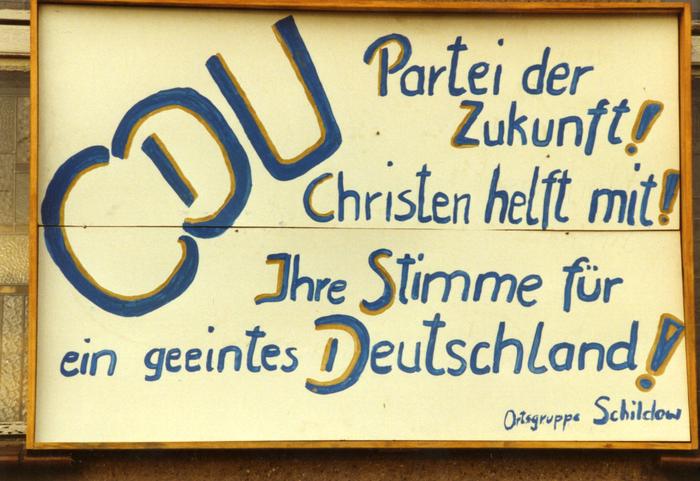 CDU
Partei der
Zukunft!
Christen helft mit!
Ihre Stimme für
ein geeintes Deutschland!
Ortsgruppe Schildow